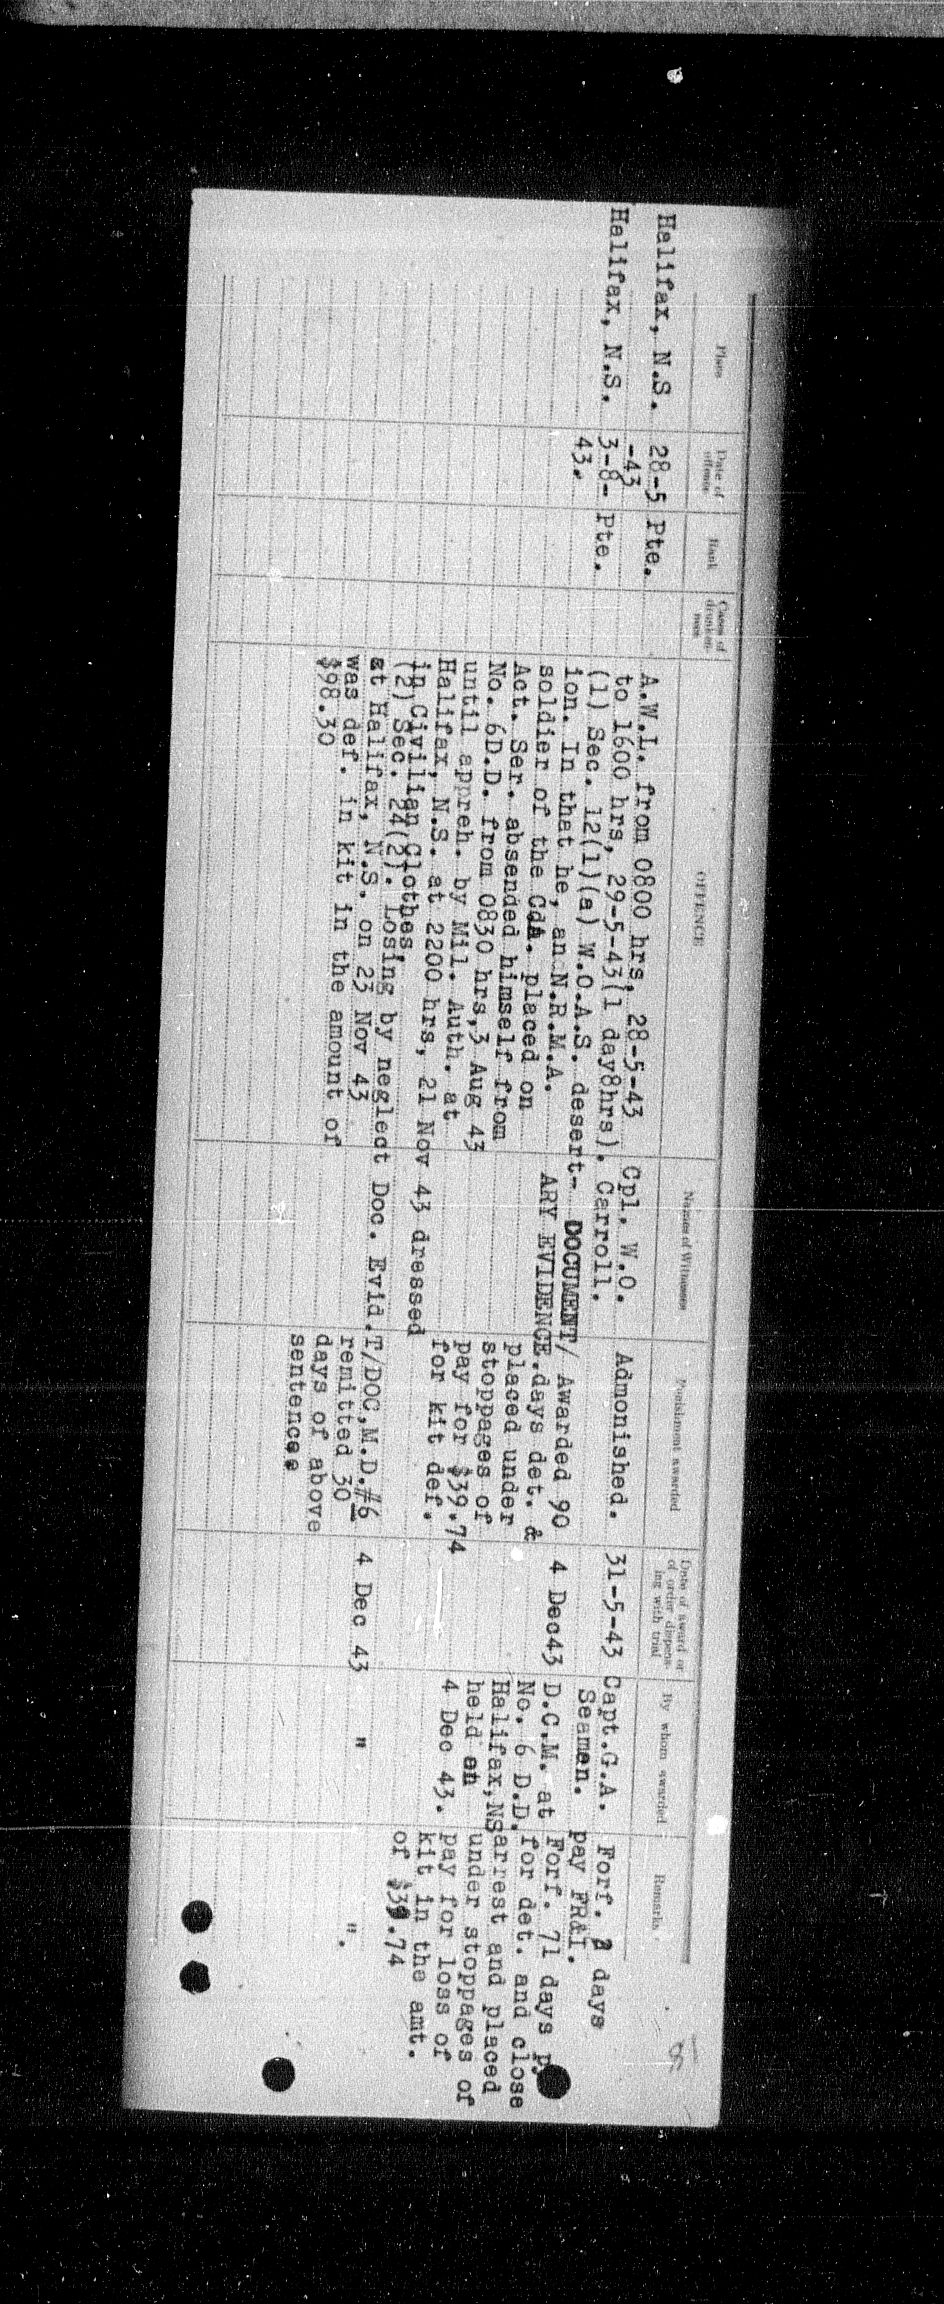 Place
Date of offence
Rank
Cases of drunkenness
OFFENCE
Names of Witnesses
Punishment awarded
Date of award or of order dispensing with trial
By whom awarded
Remarks
Halifax, N.S.
28-5
-43
Pte.
A.W.L. from 0800 hrs, 28-5-43
to 1600 hrs, 29-5-43(1 day8hrs).
Cpl. W.O.
Carroll.
Admonished.
31-5-43
Capt.G.A.
Seaman.
Forf. 2 days
pay FR&I.
Halifax, N.S.
3-8-
43.
Pte.
(1) Sec. 12(1)(a) W.O.A.S. desert-
ion. In that he, an N.R.M.A.
soldier of the CdA. placed on
Act. Ser. absended himself from
No. 6D.D. from 0830 hrs,3 Aug 43
until appreh. by Mil. Auth. at
Halifax, N.S. at 2200 hrs, 21 Nov 43 dressed
in Civilian Clothes.
(2) Sec. 24(2). Losing by neglect
at Halifax, N.S. on 23 Nov 43
was def. in kit in the amount of
$98.30
DOCUMENT/
ARY EVIDENCE.
Awarded 90
days det. &
placed under
stoppages of
pay for $39.74
for kit def.
4 Dec43
D.C.M. at
No. 6 D.D.
Halifax,NS
held an
4 Dec 43.
Forf. 71 days p.
for det. and close
arrest and placed
under stoppages of
pay for loss of
kit in the amt.
of $39.74
Doc. Evid.
T/DOC,M.D.#6
remitted 30
days of above
sentences
4 Dec 43
"
".